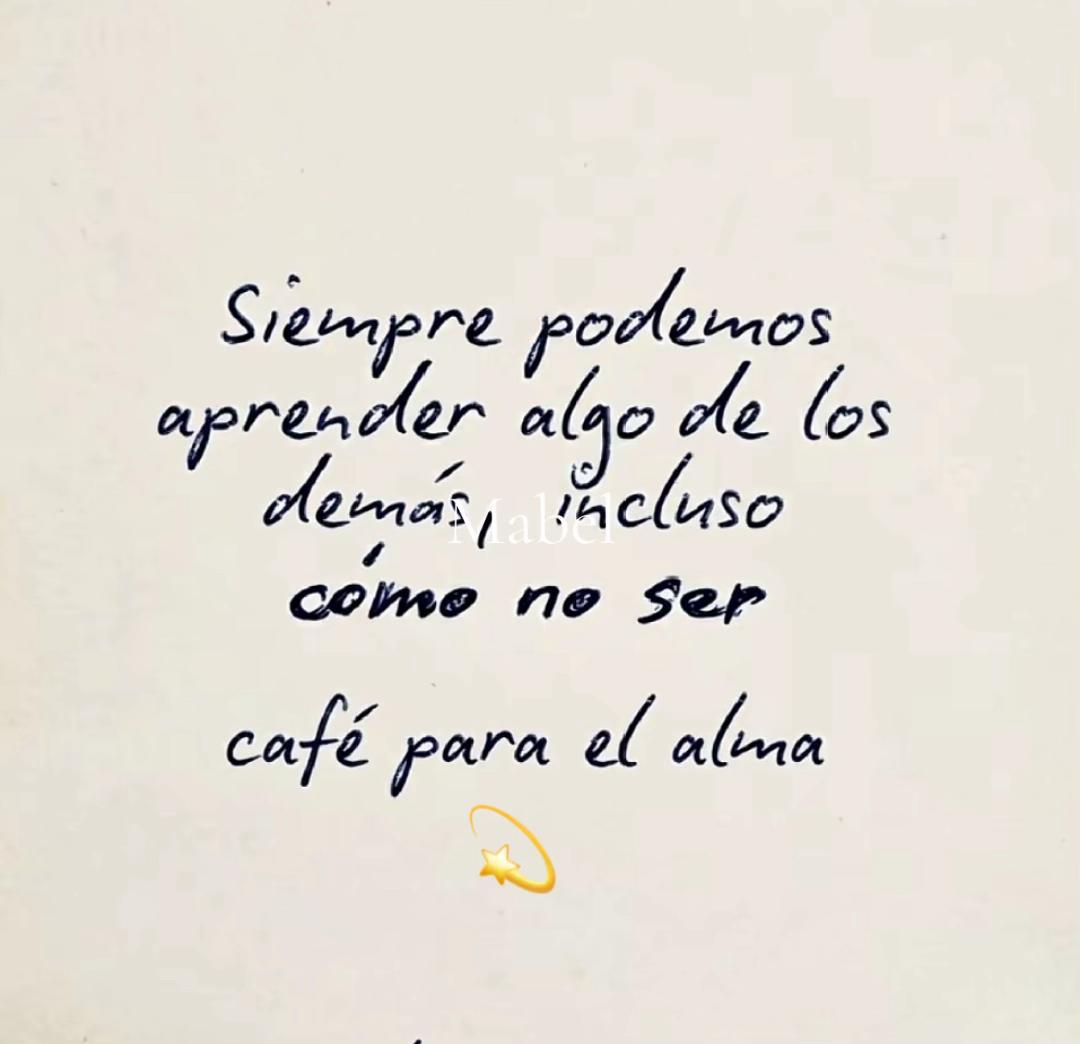 Siempre podemos
aprender algo de los
demás, incluso
Mabel
cómo no ser
café para el alma